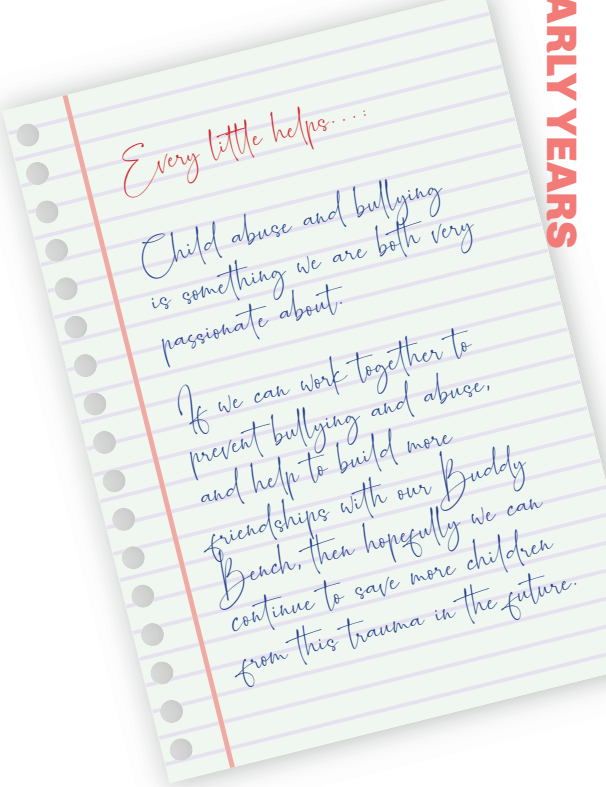 Every little helps....:
Child abuse and bullying
is something we are both very
passionate about.
If we can work together to
prevent bullying and abuse,
and help to build more
friendships with our Buddy
Bench, then hopefully we can
continue to save more children
from this trauma in the future.
ARLY YEARS